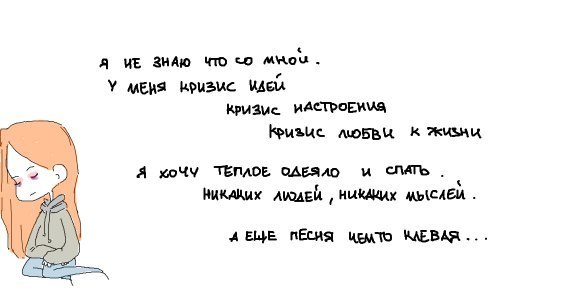 Я НЕ ЗНАЮ ЧТО СО МНОЙ.
У МЕНЯ КРИЗИС ИДЕЙ
КРИЗИС НАСТРОЕНИЯ
КРИЗИС ЛЮБВИ К ЖИЗНИ
Я ХОЧУ ТЕПЛОЕ ОДЕЯЛО И СПАТЬ.
НИКАКИХ ЛЮДЕЙ, НИКАКИХ МЫСЛЕЙ.
А ЕЩЕ ПЕСНЯ ЧЕМТО КЛЕВАЯ...